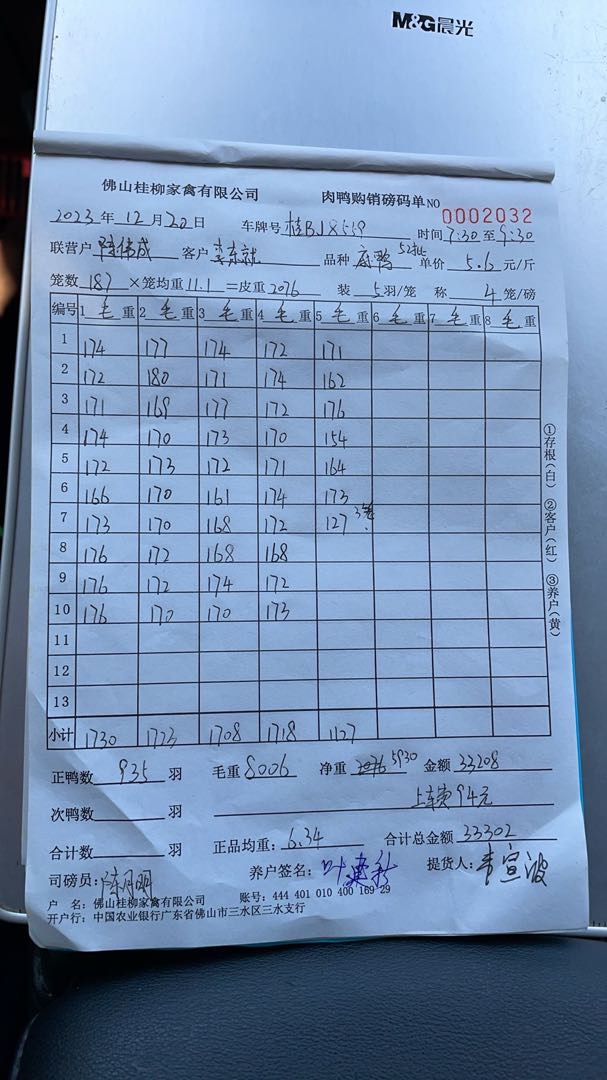 M&G晨光
佛山桂柳家禽有限公司 肉鸭购销磅码单NO 0002032
2023年12月20日 车牌号 桂BJ8559 时间7:30至9:30
联营户 陈伟成 客户 李东就 品种 麻鸭 52批 单价 5.6 元/斤
笼数 187 ×笼均重 11.1 =皮重 2076 装 5 羽/笼 称 4 笼/磅
编号 1 毛重 2 毛重 3 毛重 4 毛重 5 毛重 6 毛重 7 毛重 8 毛重
1 174 177 174 172 171
2 172 180 171 174 162
3 171 169 177 172 176
4 174 170 173 170 154
5 172 173 172 171 164
6 166 170 161 174 173
7 173 170 168 172 127 3笼
8 176 172 168 168
9 176 172 174 172
10 176 170 170 173
11
12
13
小计 1730 1723 1708 1718 1127
正鸭数 935 羽 毛重 8006 净重 2076 5930 金额 33208
次鸭数 羽 上车费94元
合计数 羽 正品均重: 6.34 合计总金额 33302
司磅员: 陈月明 养户签名: 叶 提货人: 韦宣波
户 名: 佛山桂柳家禽有限公司 账号: 444 401 010 400 169 29
开户行: 中国农业银行广东省佛山市三水区三水支行
①存根(白) ②客户(红) ③养户(黄)